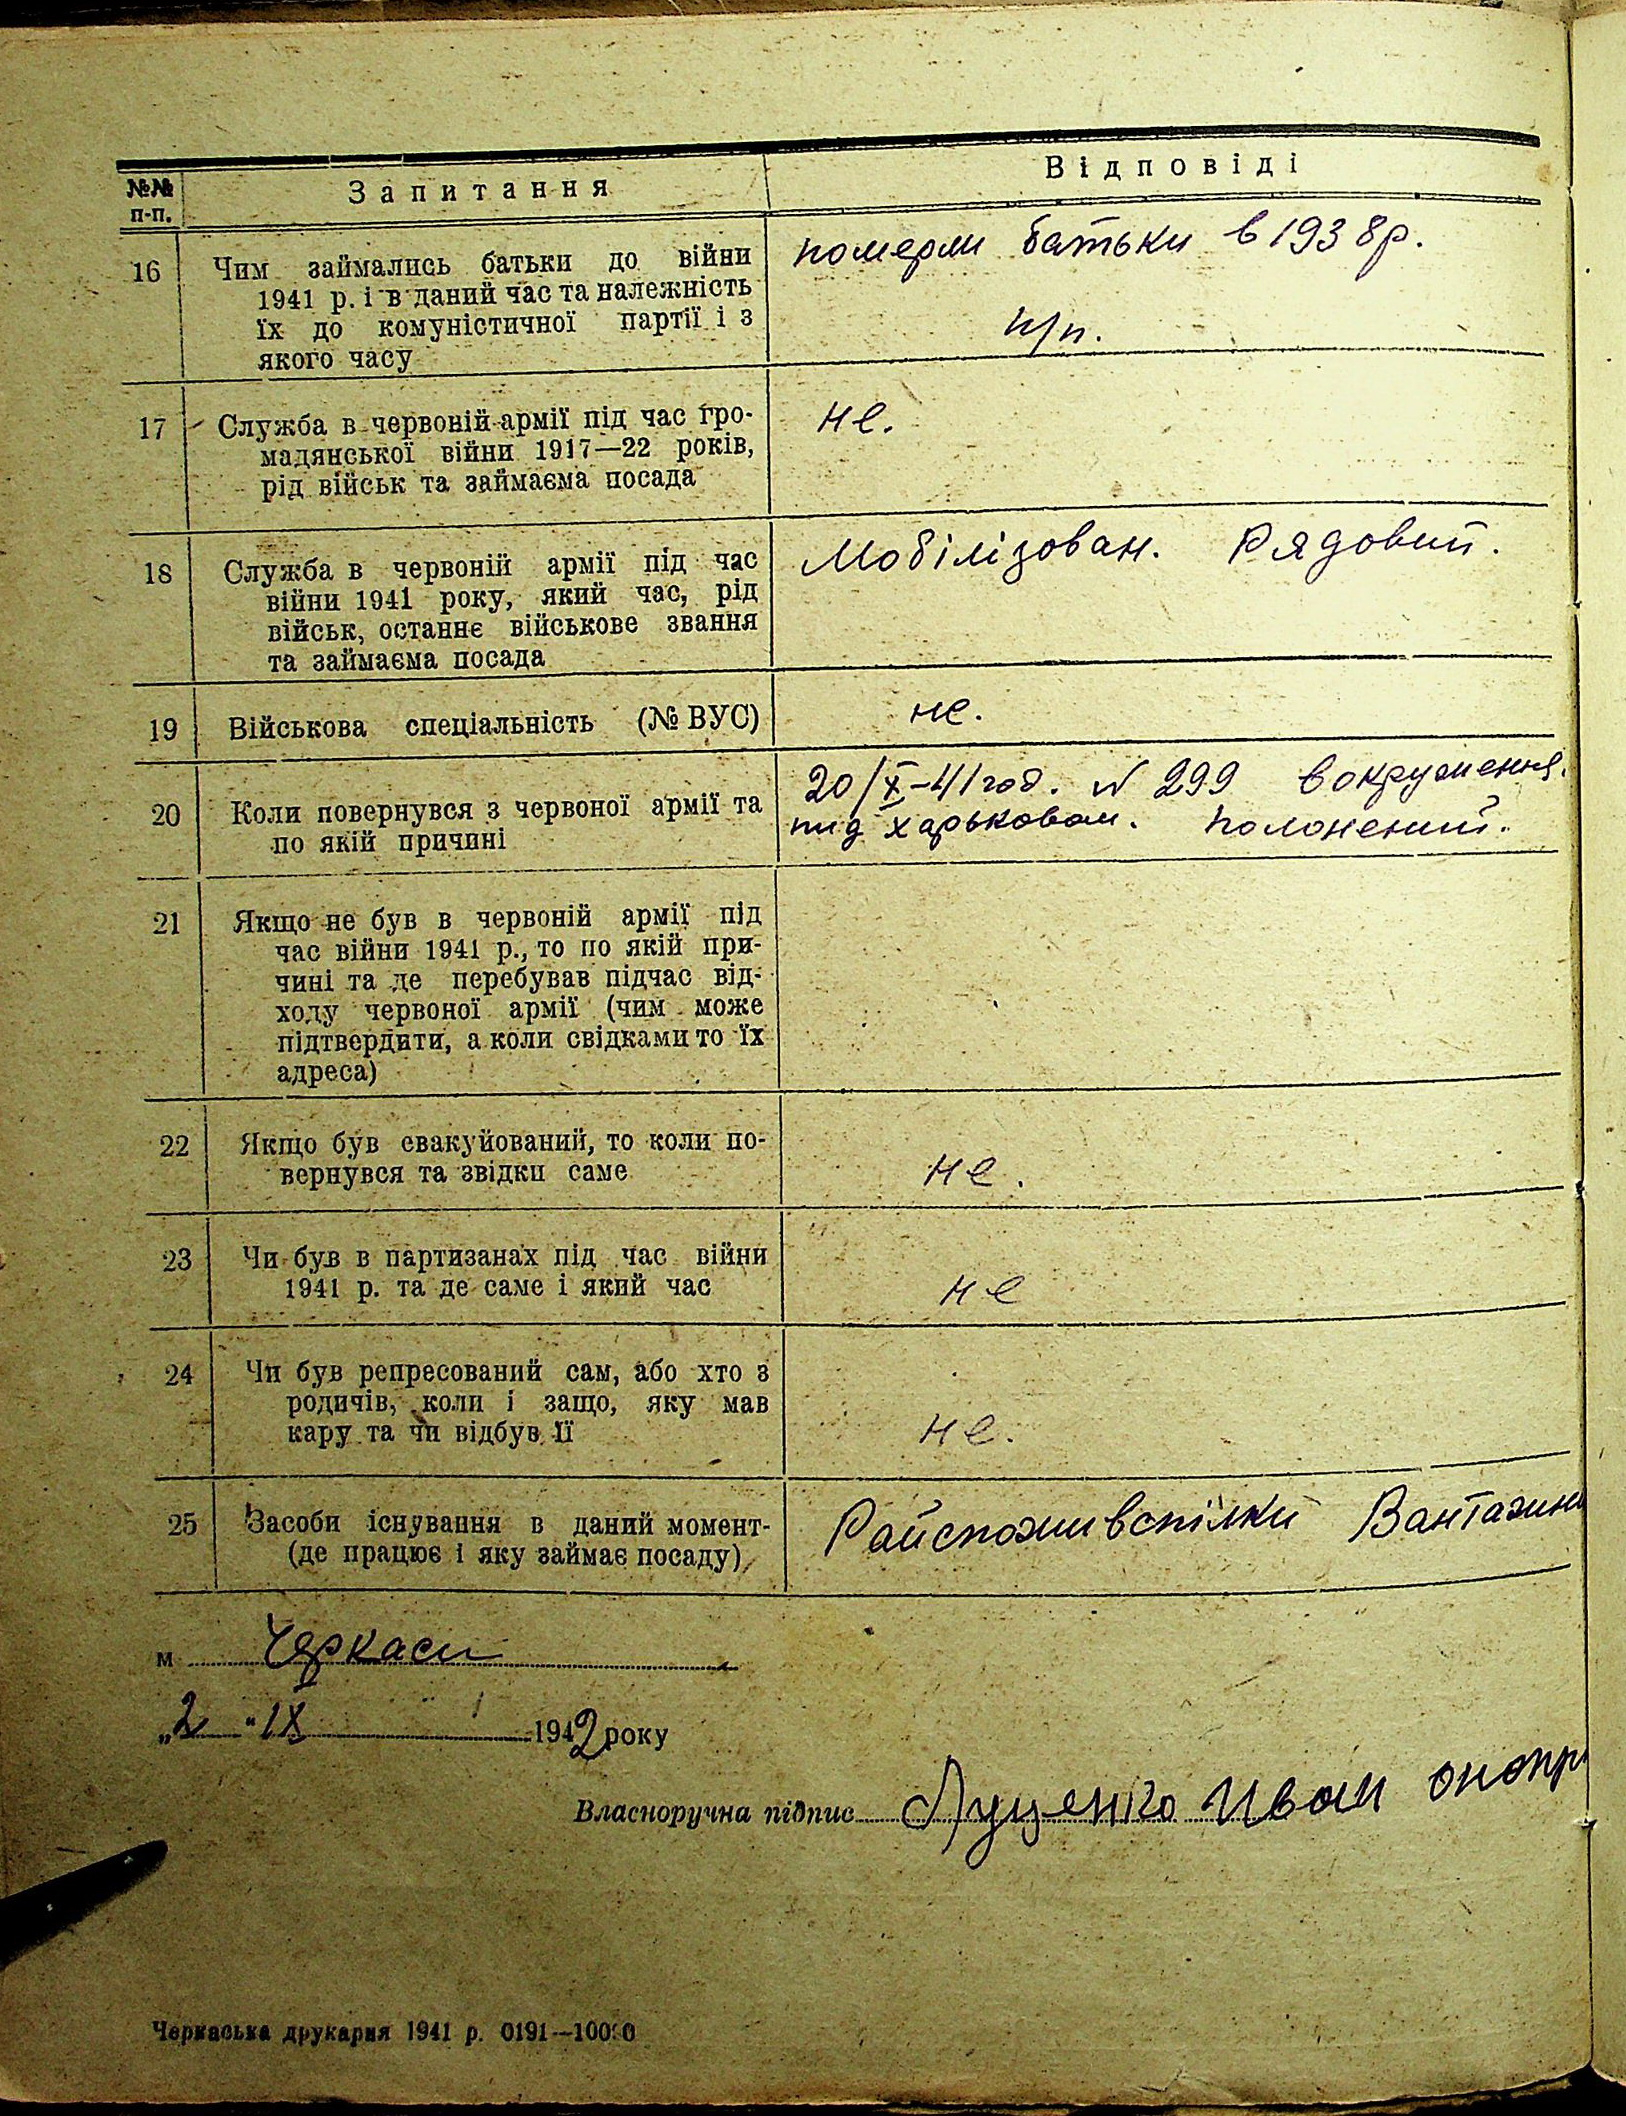 №№ п-п. Запитання Відповіді
16 Чим займались батьки до війни померли батьки в 1938р.
1941 р. і в даний час та належність
їх до комуністичної партії і з н/п.
якого часу
17 Служба в червоній армії під час гро- не.
мадянської війни 1917—22 років,
рід військ та займаєма посада
18 Служба в червоній армії під час Мобілізован. Рядовий.
війни 1941 року, який час, рід
військ, останнє військове звання
та займаєма посада
19 Військова спеціальність (№ ВУС) не.
20 Коли повернувся з червоної армії та 20/X-41год. N 299 вокружения.
по якій причині пид харьковом. полонений.
21 Якщо не був в червоній армії під
час війни 1941 р., то по якій при-
чині та де перебував підчас від-
ходу червоної армії (чим може
підтвердити, а коли свідками то їх
адреса)
22 Якщо був евакуйований, то коли по-
вернувся та звідки саме не.
23 Чи був в партизанах під час війни
1941 р. та де саме і який час не
24 Чи був репресований сам, або хто з
родичів, коли і защо, яку мав
кару та чи відбув її не.
25 Засоби існування в даний момент- Райспоживспілки Вантажни
(де працює і яку займає посаду)
м Черкаси
„2“ IX 1942 року
Власноручна підпис Луценко Иван онопр
Черкаська друкарня 1941 р. 0191—10000